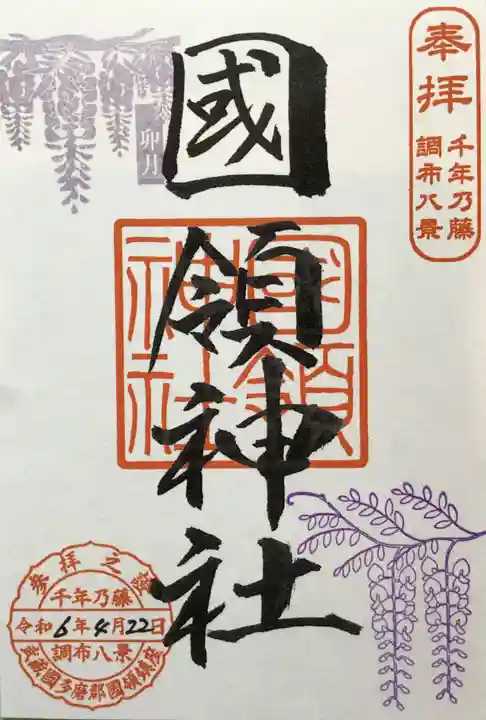 奉拝
千年乃藤
調布八景
卯月
國領神社
國領
神社
参拝之証
千年乃藤
令和6年4月22日
調布八景
武蔵國多磨郡國領鎮座